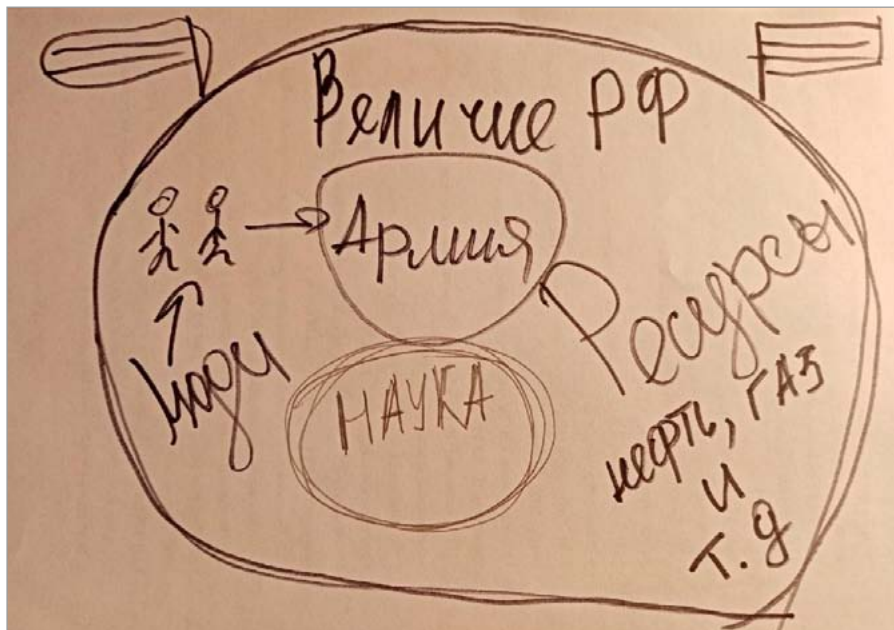 Величие РФ
Армия
Люди
НАУКА
Ресурсы
нефть, ГАЗ
и
т.д